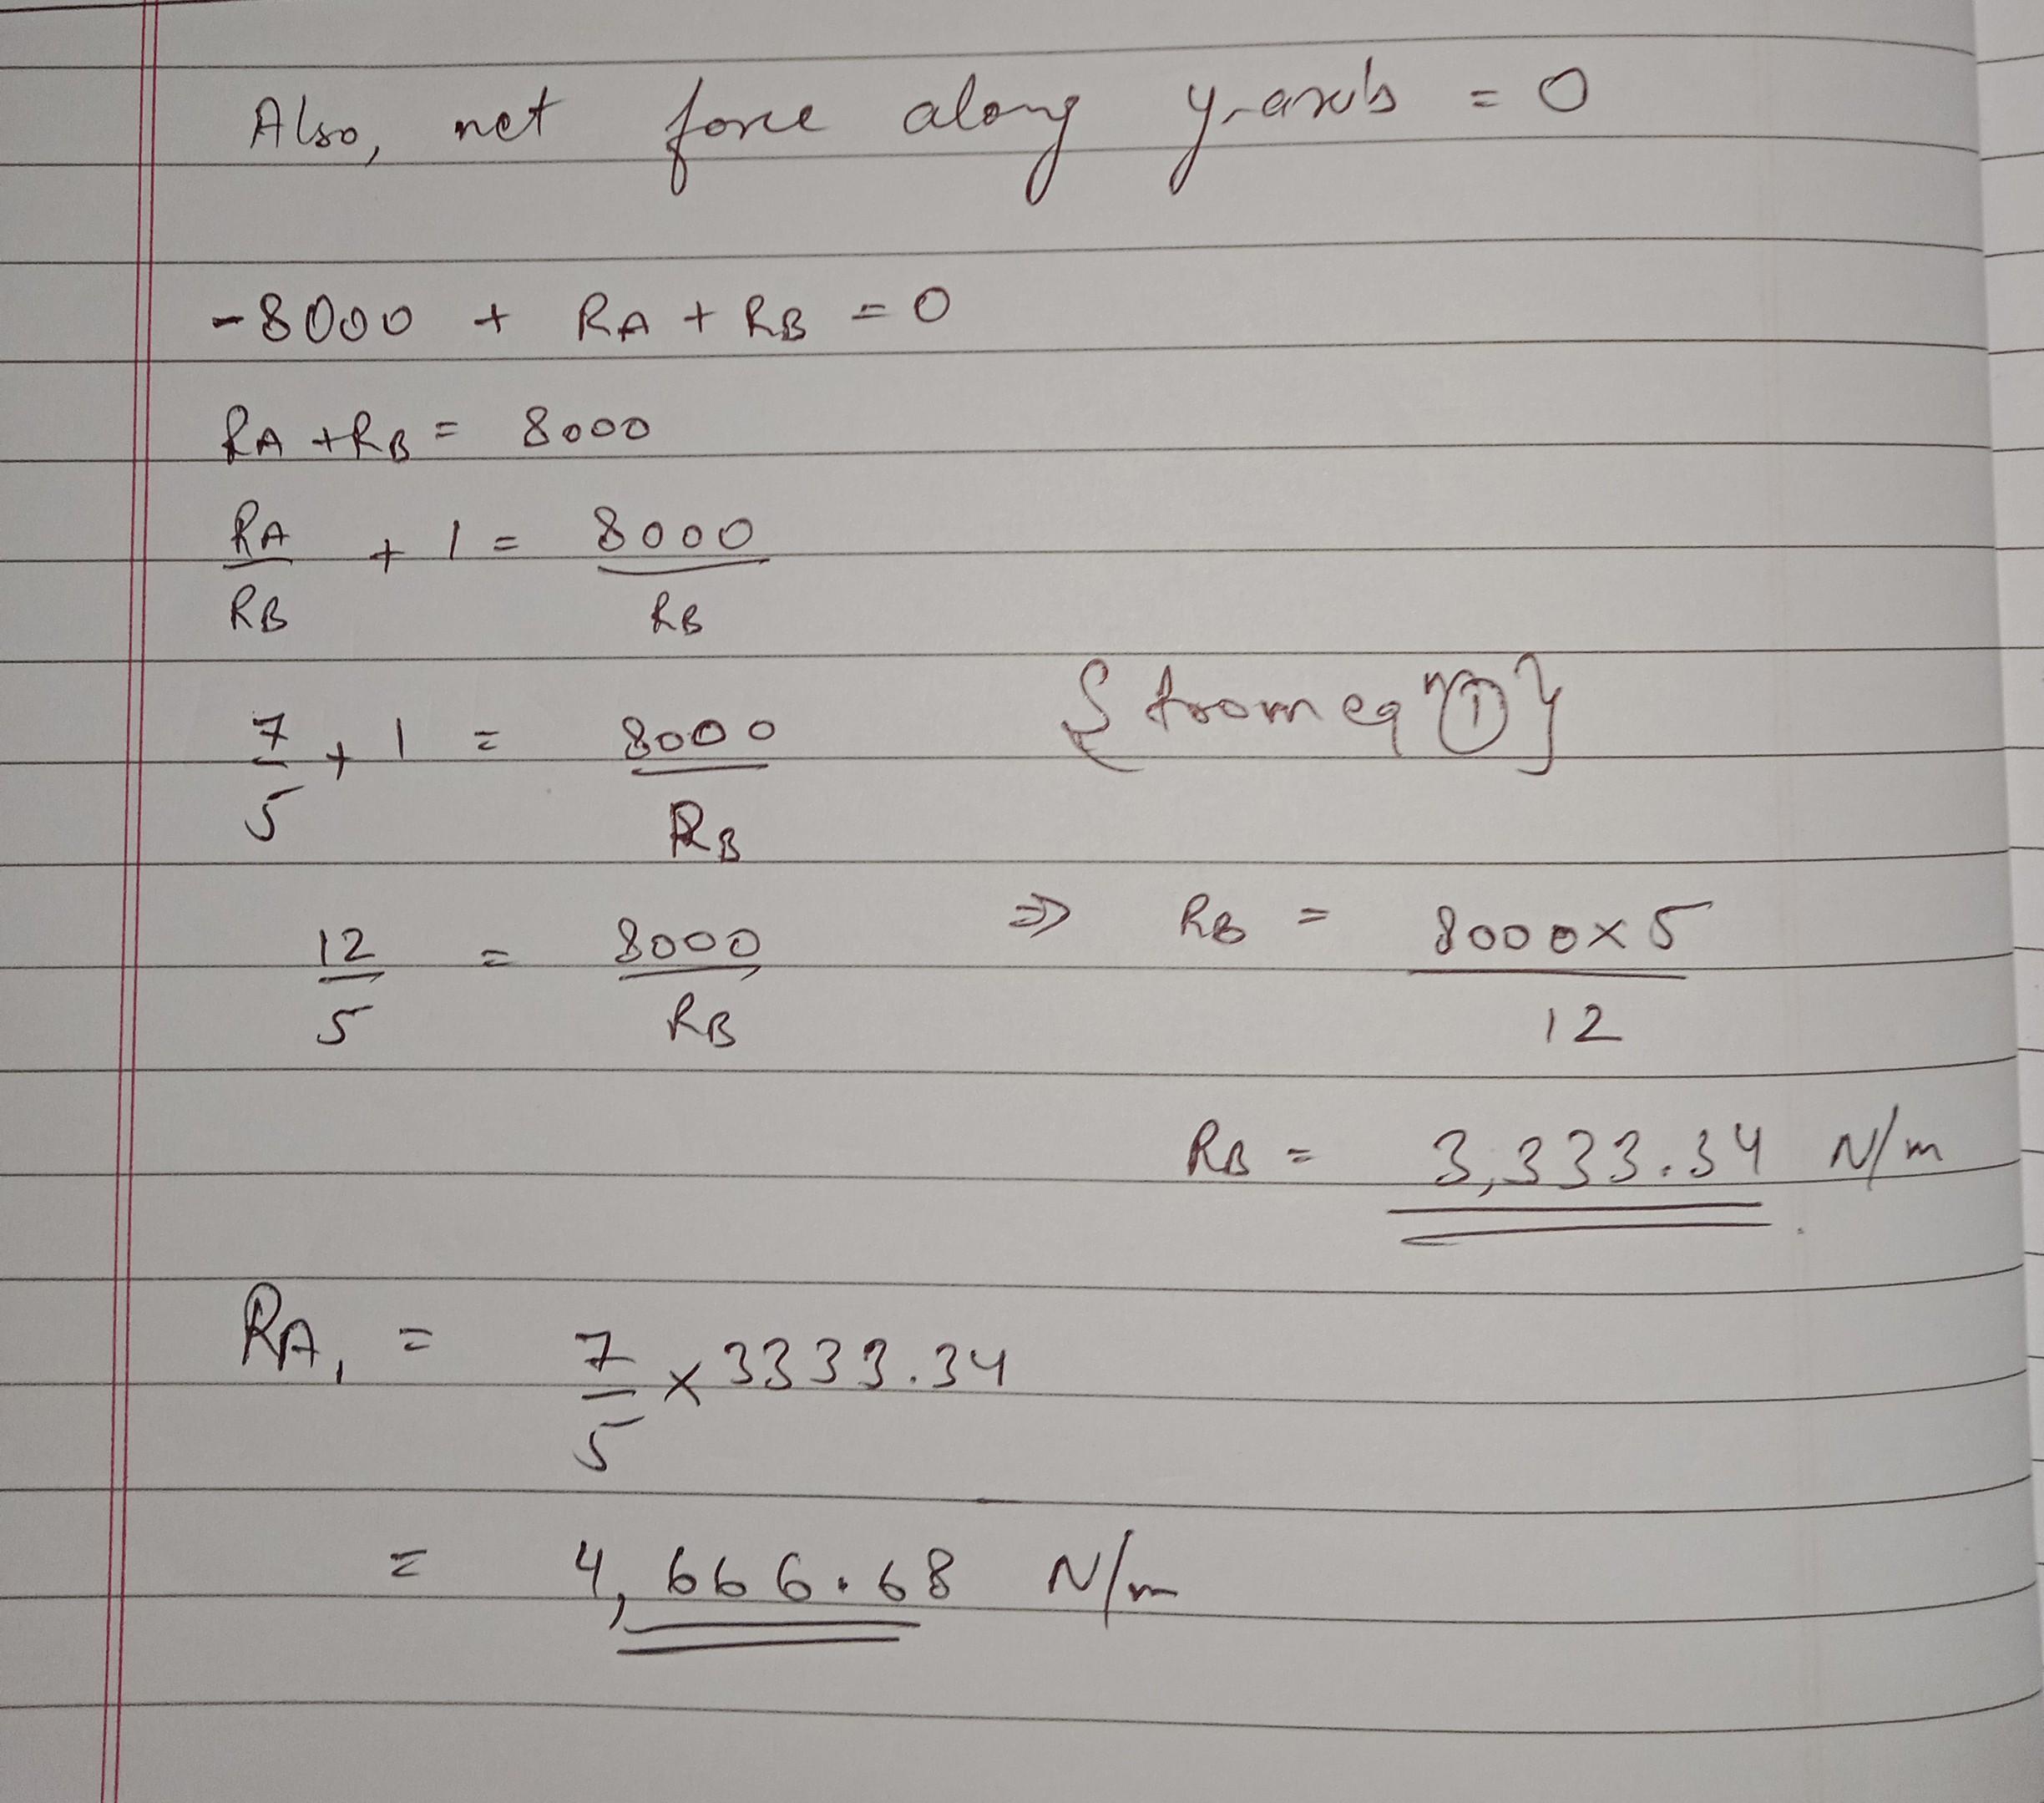 Also, net force along y-axis = 0
-8000 + RA + RB = 0
RA + RB = 8000
RA/RB + 1 = 8000/RB
7/5 + 1 = 8000/RB {from eqn ①}
12/5 = 8000/RB ⇒ RB = 8000×5/12
RB = 3,333.34 N/m
RA, = 7/5 × 3333.34
= 4,666.68 N/m